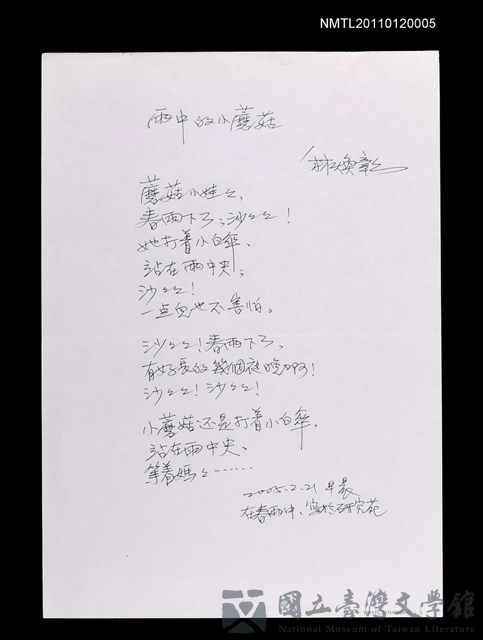 NMTL20110120005
雨中的小蘑菇
林煥彰
蘑菇小娃々,
春雨下了;沙々々!
她打着小白傘、
站在雨中央;
沙々々!
一点兒也不害怕。
沙々々!春雨下了。
有好長的幾個夜晚啊!
沙々々!沙々々!
小蘑菇还是打着小白傘,
站在雨中央、
等着媽々……
2005.2.21 早晨
在春雨中、寫於研究苑
國立臺灣文學館
National Museum of Taiwan Literature